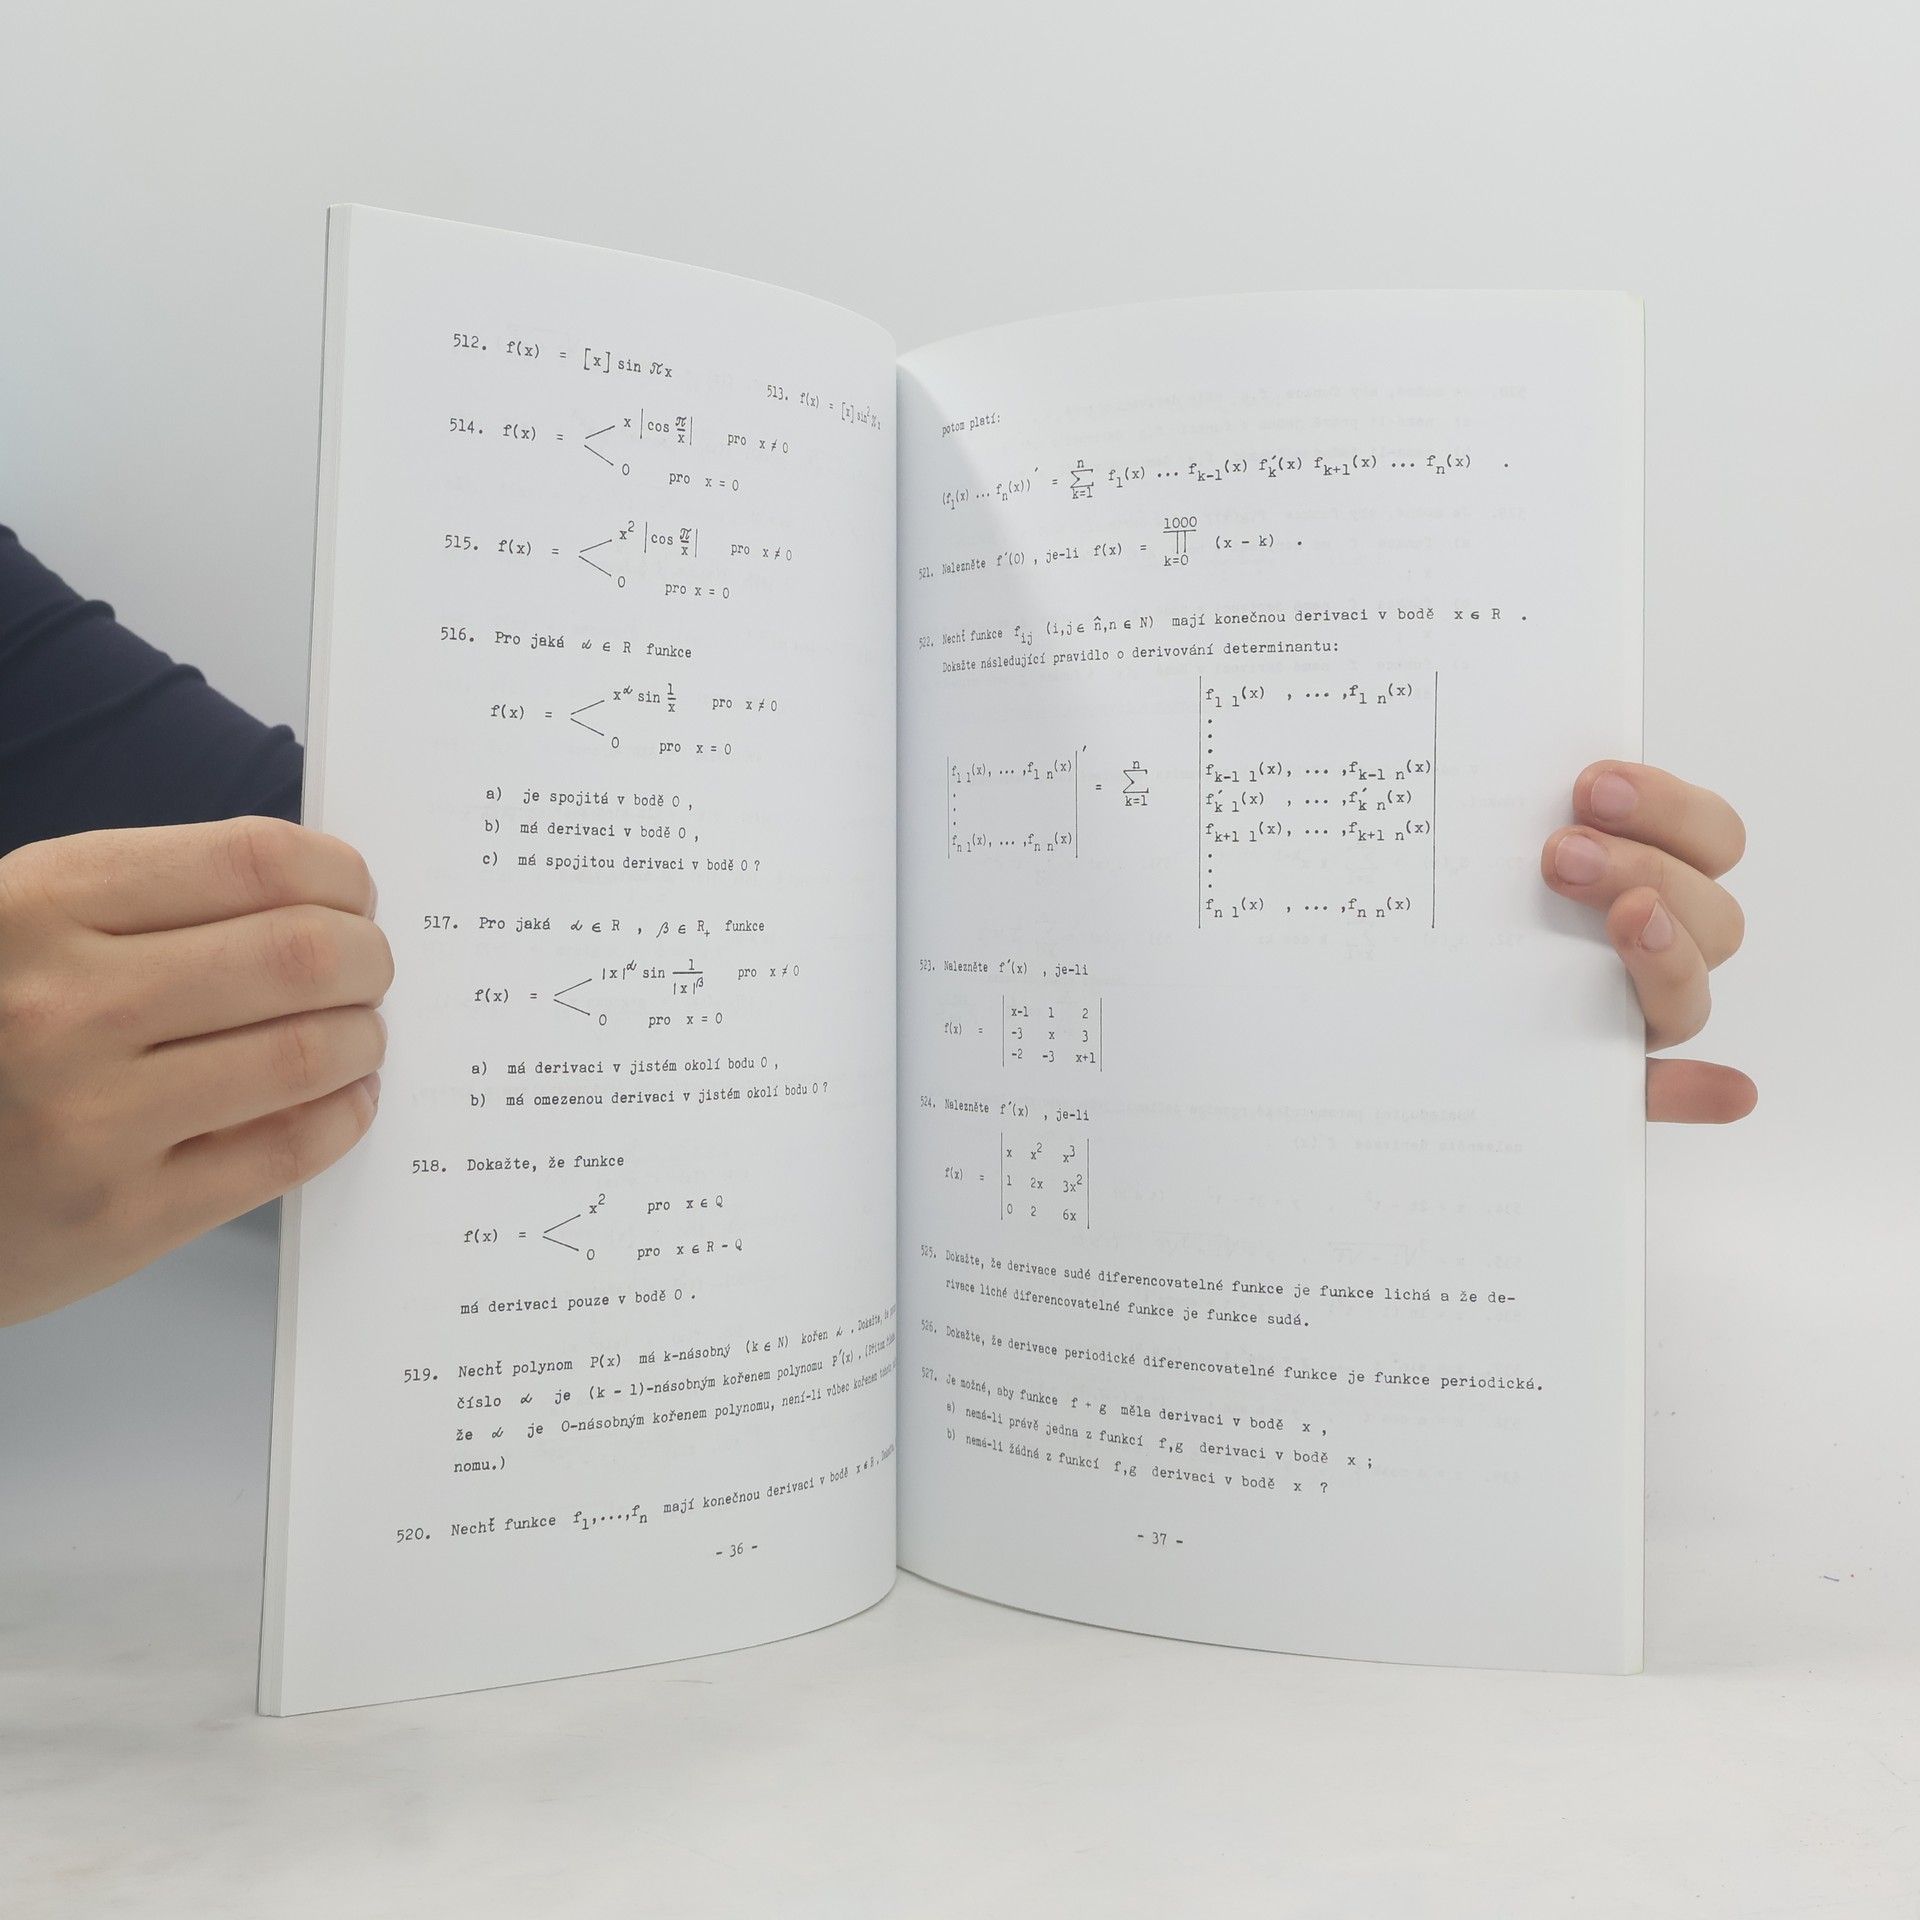 512. f(x) = [x] sin πx
513. f(x) = [x] sin² πx
514. f(x) = x |cos π/x| pro x ≠ 0
0 pro x = 0
515. f(x) = x² |cos π/x| pro x ≠ 0
0 pro x = 0
516. Pro jaká α ∈ R funkce
f(x) = x^α sin 1/x pro x ≠ 0
0 pro x = 0
a) je spojitá v bodě 0 ,
b) má derivaci v bodě 0 ,
c) má spojitou derivaci v bodě 0 ?
517. Pro jaká α ∈ R , β ∈ R₊ funkce
f(x) = |x|^α sin 1/|x|^β pro x ≠ 0
0 pro x = 0
a) má derivaci v jistém okolí bodu 0 ,
b) má omezenou derivaci v jistém okolí bodu 0 ?
518. Dokažte, že funkce
f(x) = x² pro x ∈ Q
0 pro x ∈ R - Q
má derivaci pouze v bodě 0 .
519. Nechť polynom P(x) má k-násobný (k ∈ N) kořen α . Dokažte, že
číslo α je (k - 1)-násobným kořenem polynomu P´(x) . (Přitom
že α je 0-násobným kořenem polynomu, není-li vůbec kořenem
nomu.)
520. Nechť funkce f₁,...,fₙ mají konečnou derivaci v bodě x ∈ R .
- 36 -
potom platí:
(f₁(x) ... fₙ(x))´ = ∑ₖ₌₁ⁿ f₁(x) ... fₖ₋₁(x) f´ₖ(x) fₖ₊₁(x) ... fₙ(x) .
521. Nalezněte f´(0) , je-li f(x) = ∏ₖ₌₀¹⁰⁰⁰ (x - k) .
522. Nechť funkce f_ij (i,j ∈ n̂,n ∈ N) mají konečnou derivaci v bodě x ∈ R .
Dokažte následující pravidlo o derivování determinantu:
|f₁ ₁(x), ... ,f₁ ₙ(x)|´ = ∑ₖ₌₁ⁿ |f₁ ₁(x) , ... ,f₁ ₙ(x)|
fₖ₋₁ ₁(x), ... ,fₖ₋₁ ₙ(x)
f´ₖ ₁(x) , ... ,f´ₖ ₙ(x)
fₖ₊₁ ₁(x), ... ,fₖ₊₁ ₙ(x)
fₙ ₁(x), ... ,fₙ ₙ(x)
fₙ ₁(x) , ... ,fₙ ₙ(x)
523. Nalezněte f´(x) , je-li
x-1 1 2
f(x) = -3 x 3
-2 -3 x+1
524. Nalezněte f´(x) , je-li
x x² x³
f(x) = 1 2x 3x²
0 2 6x
525. Dokažte, že derivace sudé diferencovatelné funkce je funkce lichá a že de-
rivace liché diferencovatelné funkce je funkce sudá.
526. Dokažte, že derivace periodické diferencovatelné funkce je funkce periodická.
527. Je možné, aby funkce f + g měla derivaci v bodě x ,
a) nemá-li právě jedna z funkcí f,g derivaci v bodě x ;
b) nemá-li žádná z funkcí f,g derivaci v bodě x ?
- 37 -